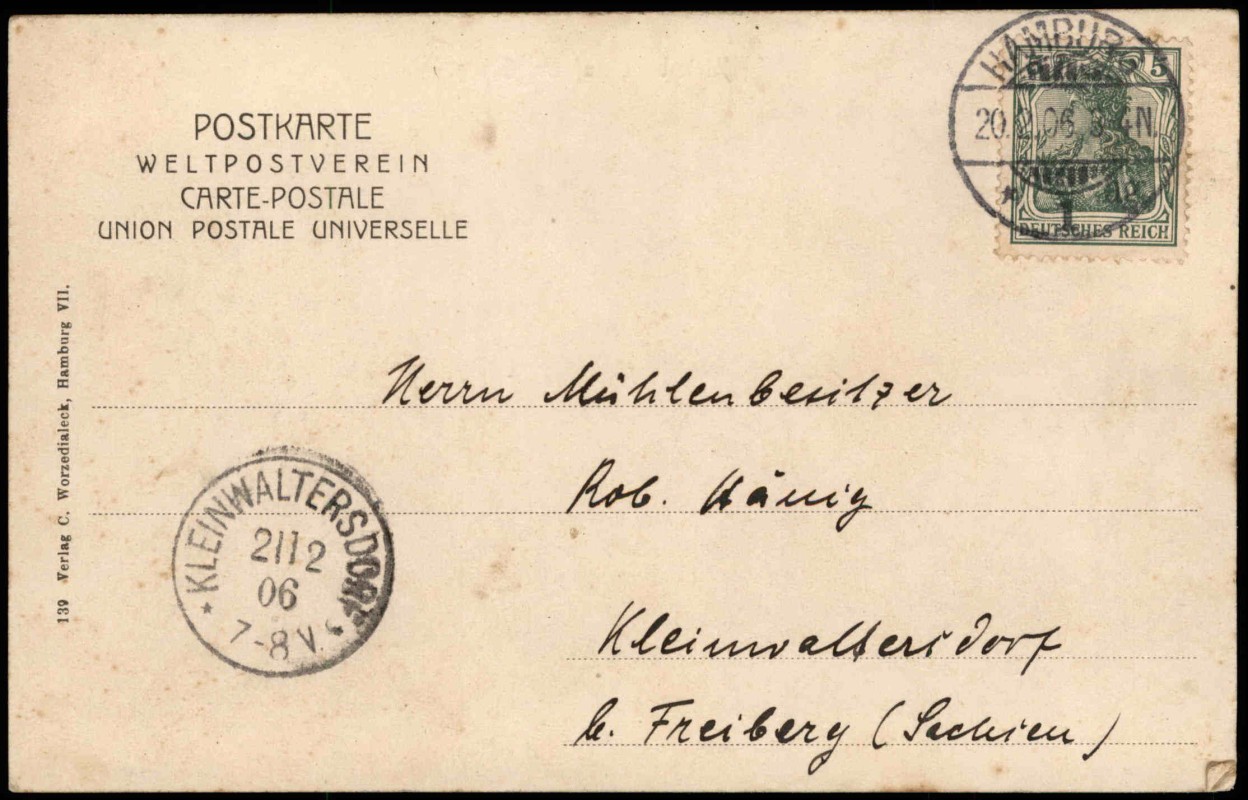 POSTKARTE
WELTPOSTVEREIN
CARTE-POSTALE
UNION POSTALE UNIVERSELLE
HAMBURG
5
20. 2.06
4N.
1
DEUTSCHES REICH
139 Verlag C. Worzedialeck, Hamburg VII.
Herrn Mühlenbesitzer
Rob. Hänig
KLEINWALTERSDORF
21 12
06
7-8 V.
Kleinwaltersdorf
b. Freiberg (Sachsen)